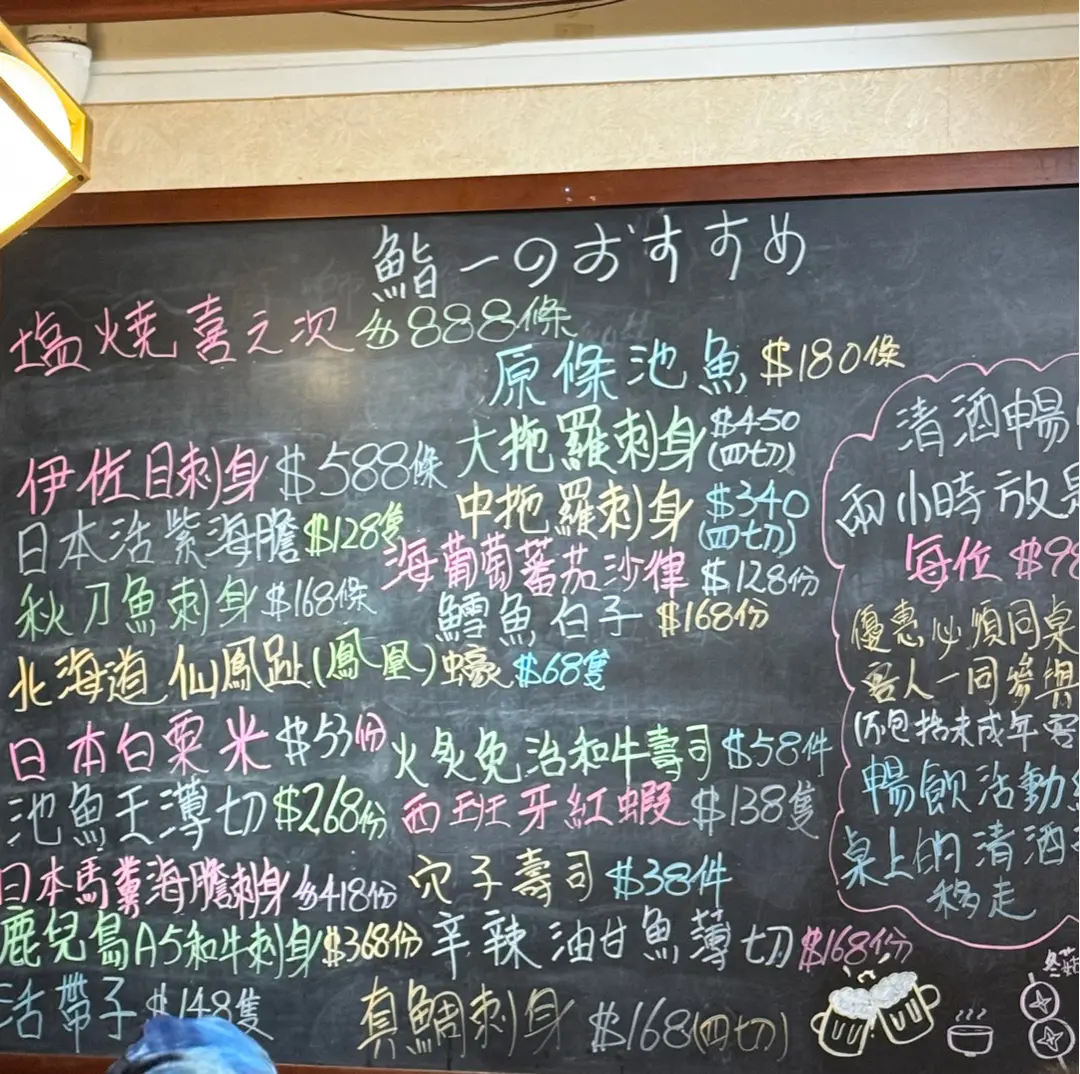 鮨一のおすすめ
塩燒喜之次 $888條
原條池魚 $180條
大拖羅刺身 $450 (四切)
伊佐目刺身 $588條
中拖羅刺身 $340 (四切)
日本活紫海膽 $128隻
海葡萄蕃茄沙律 $128份
秋刀魚刺身 $168條
鱈魚白子 $168份
北海道仙鳳趾(鳳凰)蠔 $68隻
日本白粟米 $53份
火炙免治和牛壽司 $58件
池魚王薄切 $268份
西班牙紅蝦 $138隻
日本馬糞海膽刺身 $418份
穴子壽司 $38件
鹿兒島A5和牛刺身 $368份
辛辣油甘魚薄切 $168份
活帶子 $148隻
真鯛刺身 $168(四切)
清酒暢
兩小時放
每位 $98
優惠必須同桌
客人一同參與
(不包括未成年客
暢飲活動
桌上的清酒
移走